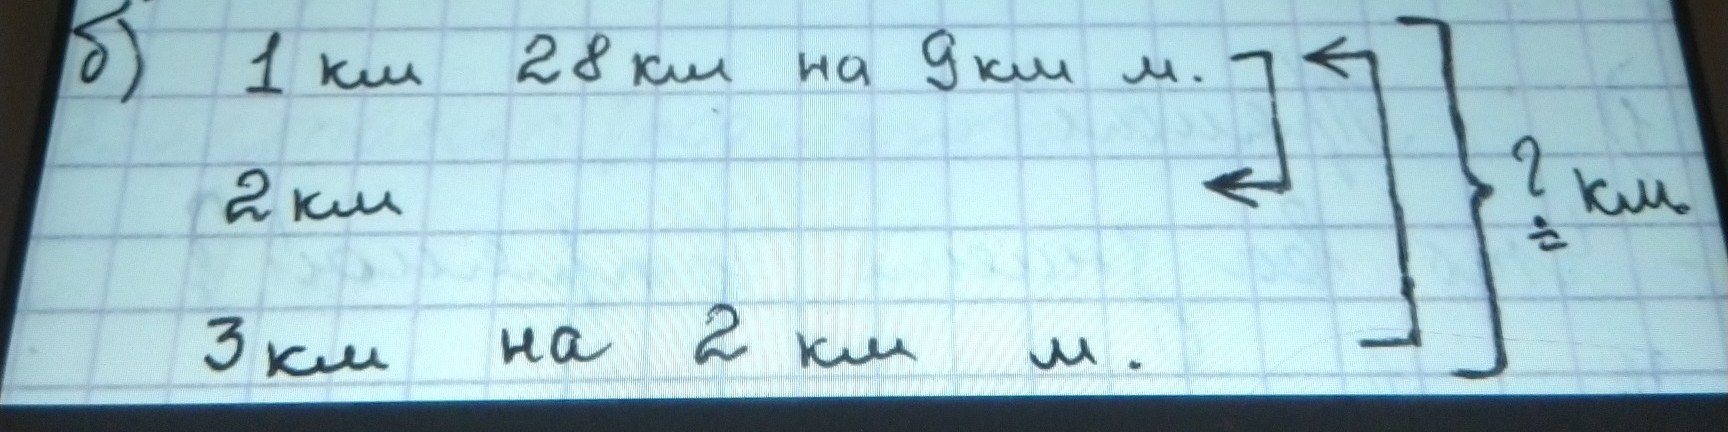 б) 1 км 28 км на 9 км м.
2 км ? км.
3 км на 2 км м.